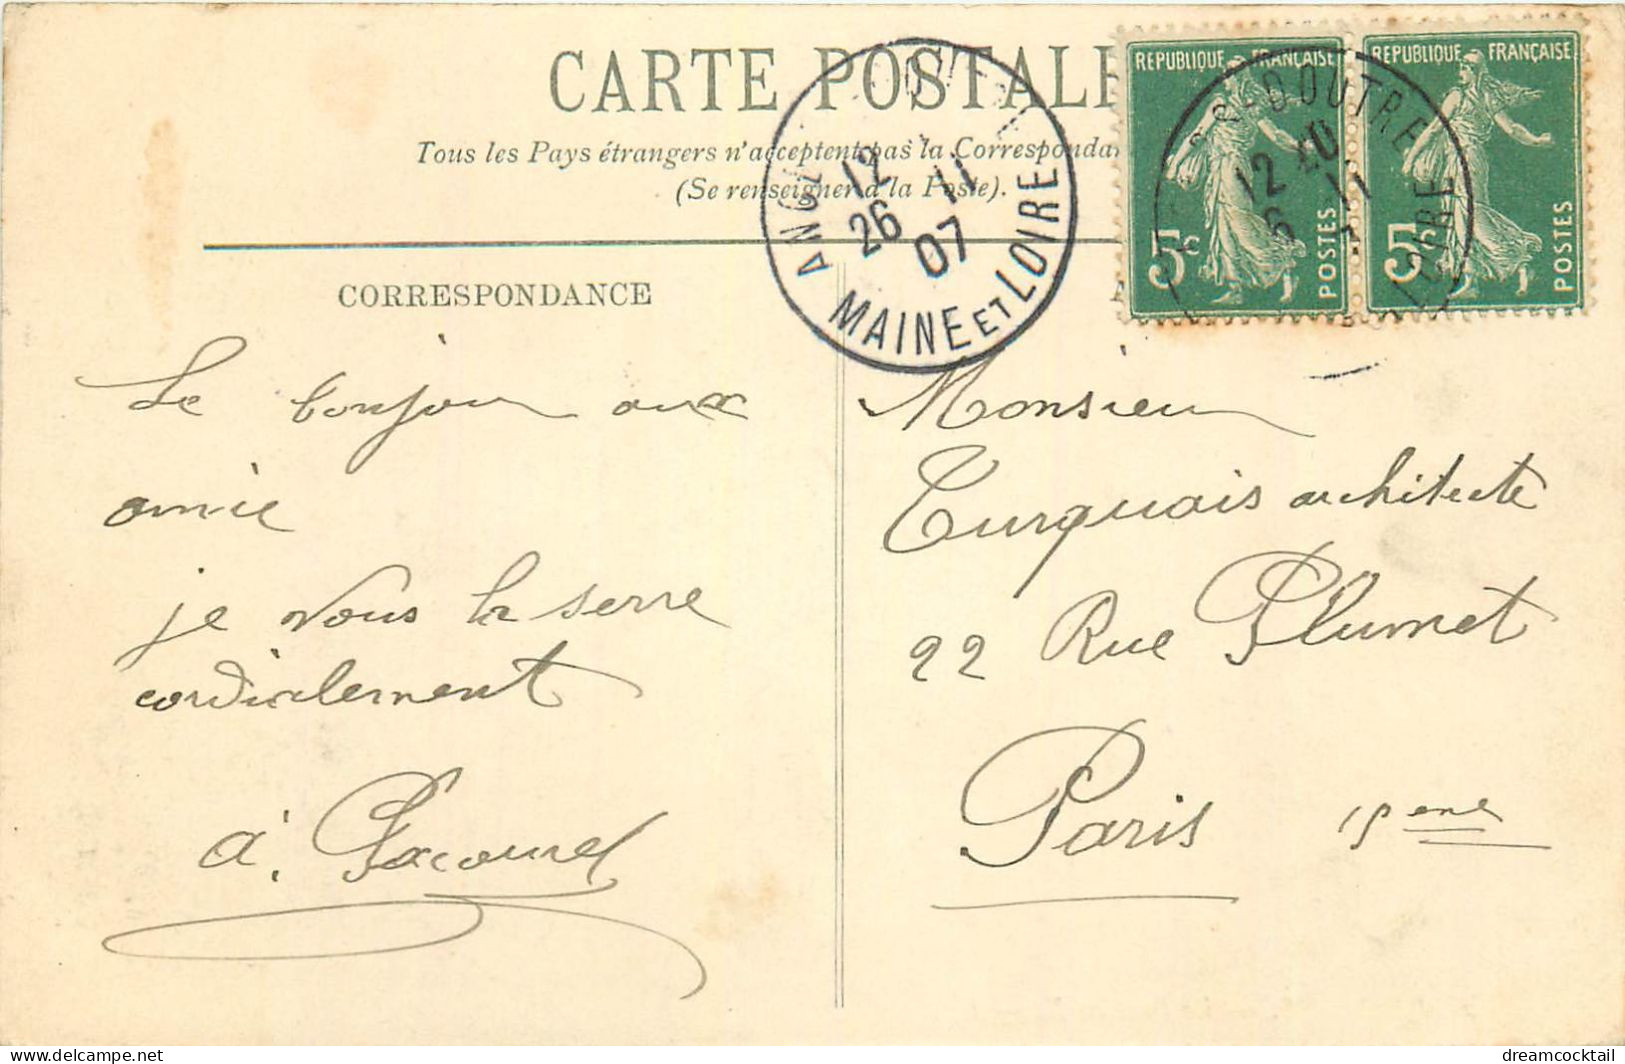 CARTE POSTALE
Tous les Pays étrangers n'acceptent pas la Correspondan
(Se renseigner à la Poste).
REPUBLIQUE FRANÇAISE
5c POSTES
REPUBLIQUE FRANÇAISE
5c POSTES
12 11
26
07
MAINE ET LOIRE
RS-DOUTRE
12 11
6 7
LOIRE
CORRESPONDANCE
Le bonjour aux
amie
je vous la serre
cordialement
Monsieur
Turquais architecte
22 Rue Plumet
Paris 15eme
dreamcocktail
Delcampe.net